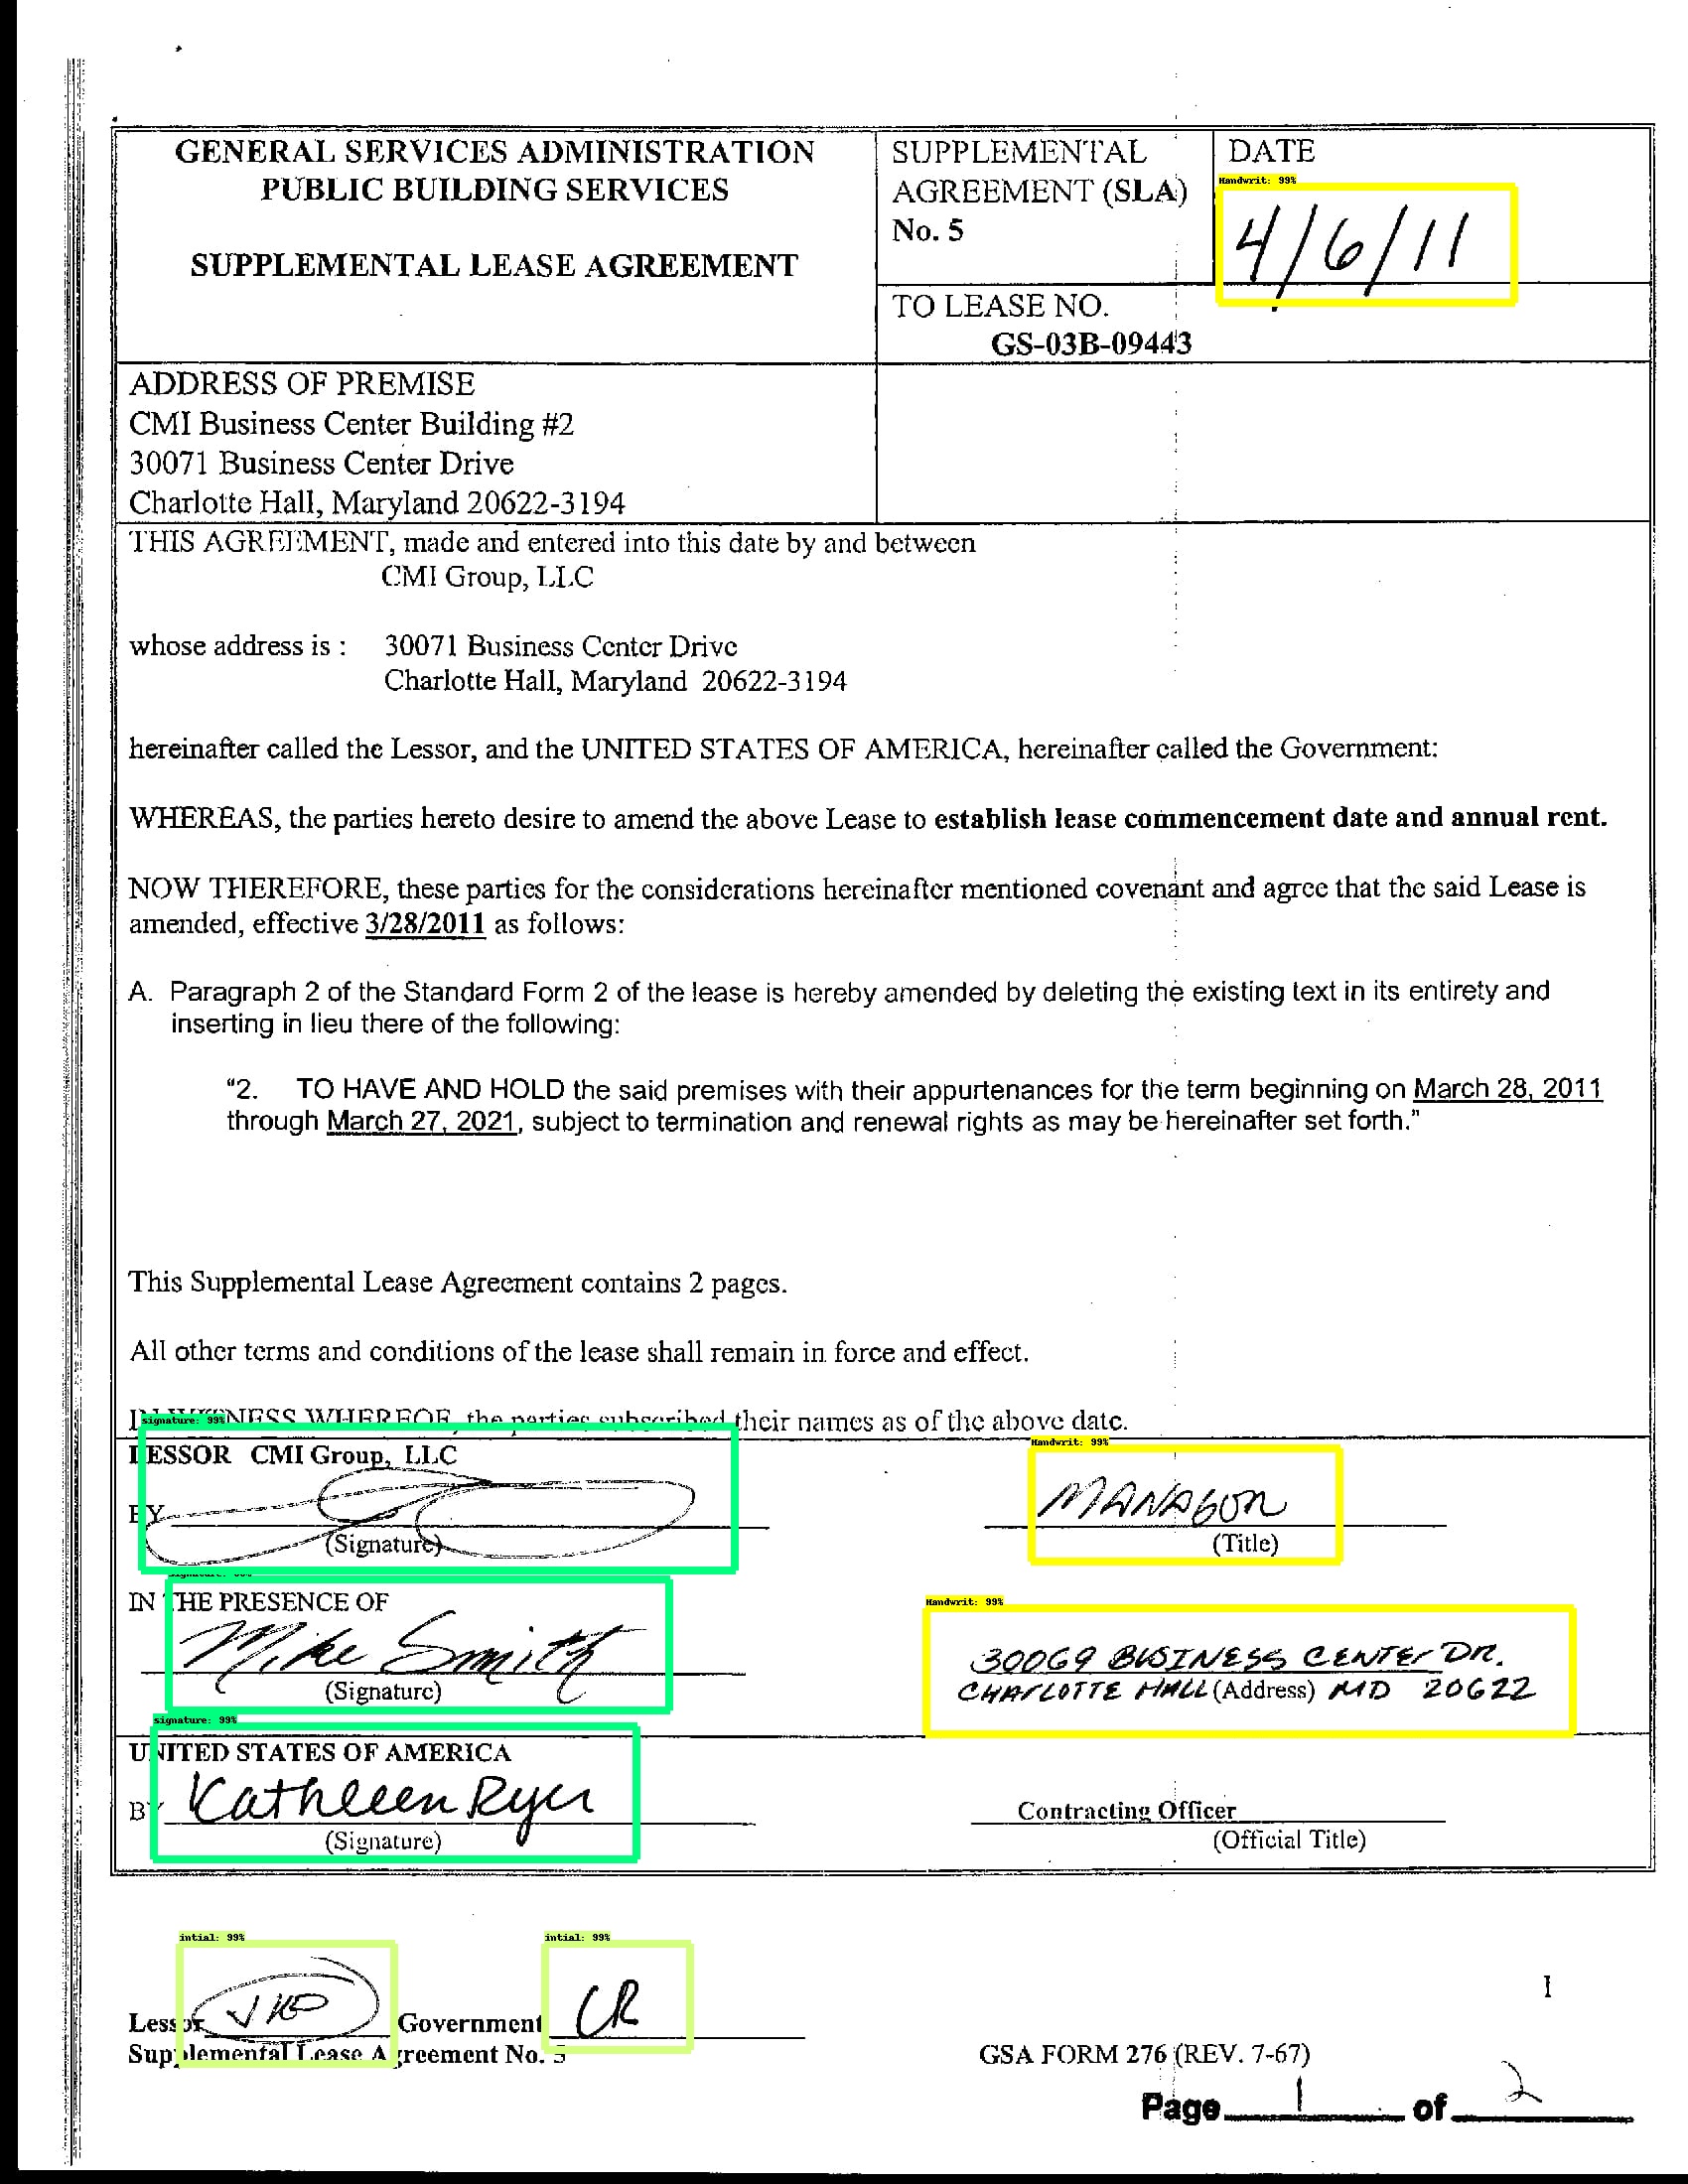 GENERAL SERVICES ADMINISTRATION
PUBLIC BUILDING SERVICES
SUPPLEMENTAL LEASE AGREEMENT
SUPPLEMENTAL
AGREEMENT (SLA)
No. 5
DATE
Handwrit: 99%
4/6/11
TO LEASE NO.
GS-03B-09443
ADDRESS OF PREMISE
CMI Business Center Building #2
30071 Business Center Drive
Charlotte Hall, Maryland 20622-3194
THIS AGREEMENT, made and entered into this date by and between
CMI Group, LLC
whose address is : 30071 Business Center Drive
Charlotte Hall, Maryland 20622-3194
hereinafter called the Lessor, and the UNITED STATES OF AMERICA, hereinafter called the Government:
WHEREAS, the parties hereto desire to amend the above Lease to establish lease commencement date and annual rent.
NOW THEREFORE, these parties for the considerations hereinafter mentioned covenant and agree that the said Lease is
amended, effective 3/28/2011 as follows:
A. Paragraph 2 of the Standard Form 2 of the lease is hereby amended by deleting the existing text in its entirety and
inserting in lieu there of the following:
"2. TO HAVE AND HOLD the said premises with their appurtenances for the term beginning on March 28, 2011
through March 27, 2021, subject to termination and renewal rights as may be hereinafter set forth."
This Supplemental Lease Agreement contains 2 pages.
All other terms and conditions of the lease shall remain in force and effect.
IN WITNESS WHEREOF, the parties subscribed their names as of the above date.
signature: 99%
LESSOR CMI Group, LLC
BY
(Signature)
Handwrit: 99%
MANAGER
(Title)
signature: 99%
IN THE PRESENCE OF
Mike Smith
(Signature)
Handwrit: 99%
30069 BUSINESS CENTER DR.
CHARLOTTE HALL (Address) MD 20622
signature: 99%
UNITED STATES OF AMERICA
BY Kathleen Ryer
(Signature)
Contracting Officer
(Official Title)
intial: 99%
intial: 99%
Lessor Government
Supplemental Lease Agreement No. 5
1
GSA FORM 276 (REV. 7-67)
Page 1 of 2